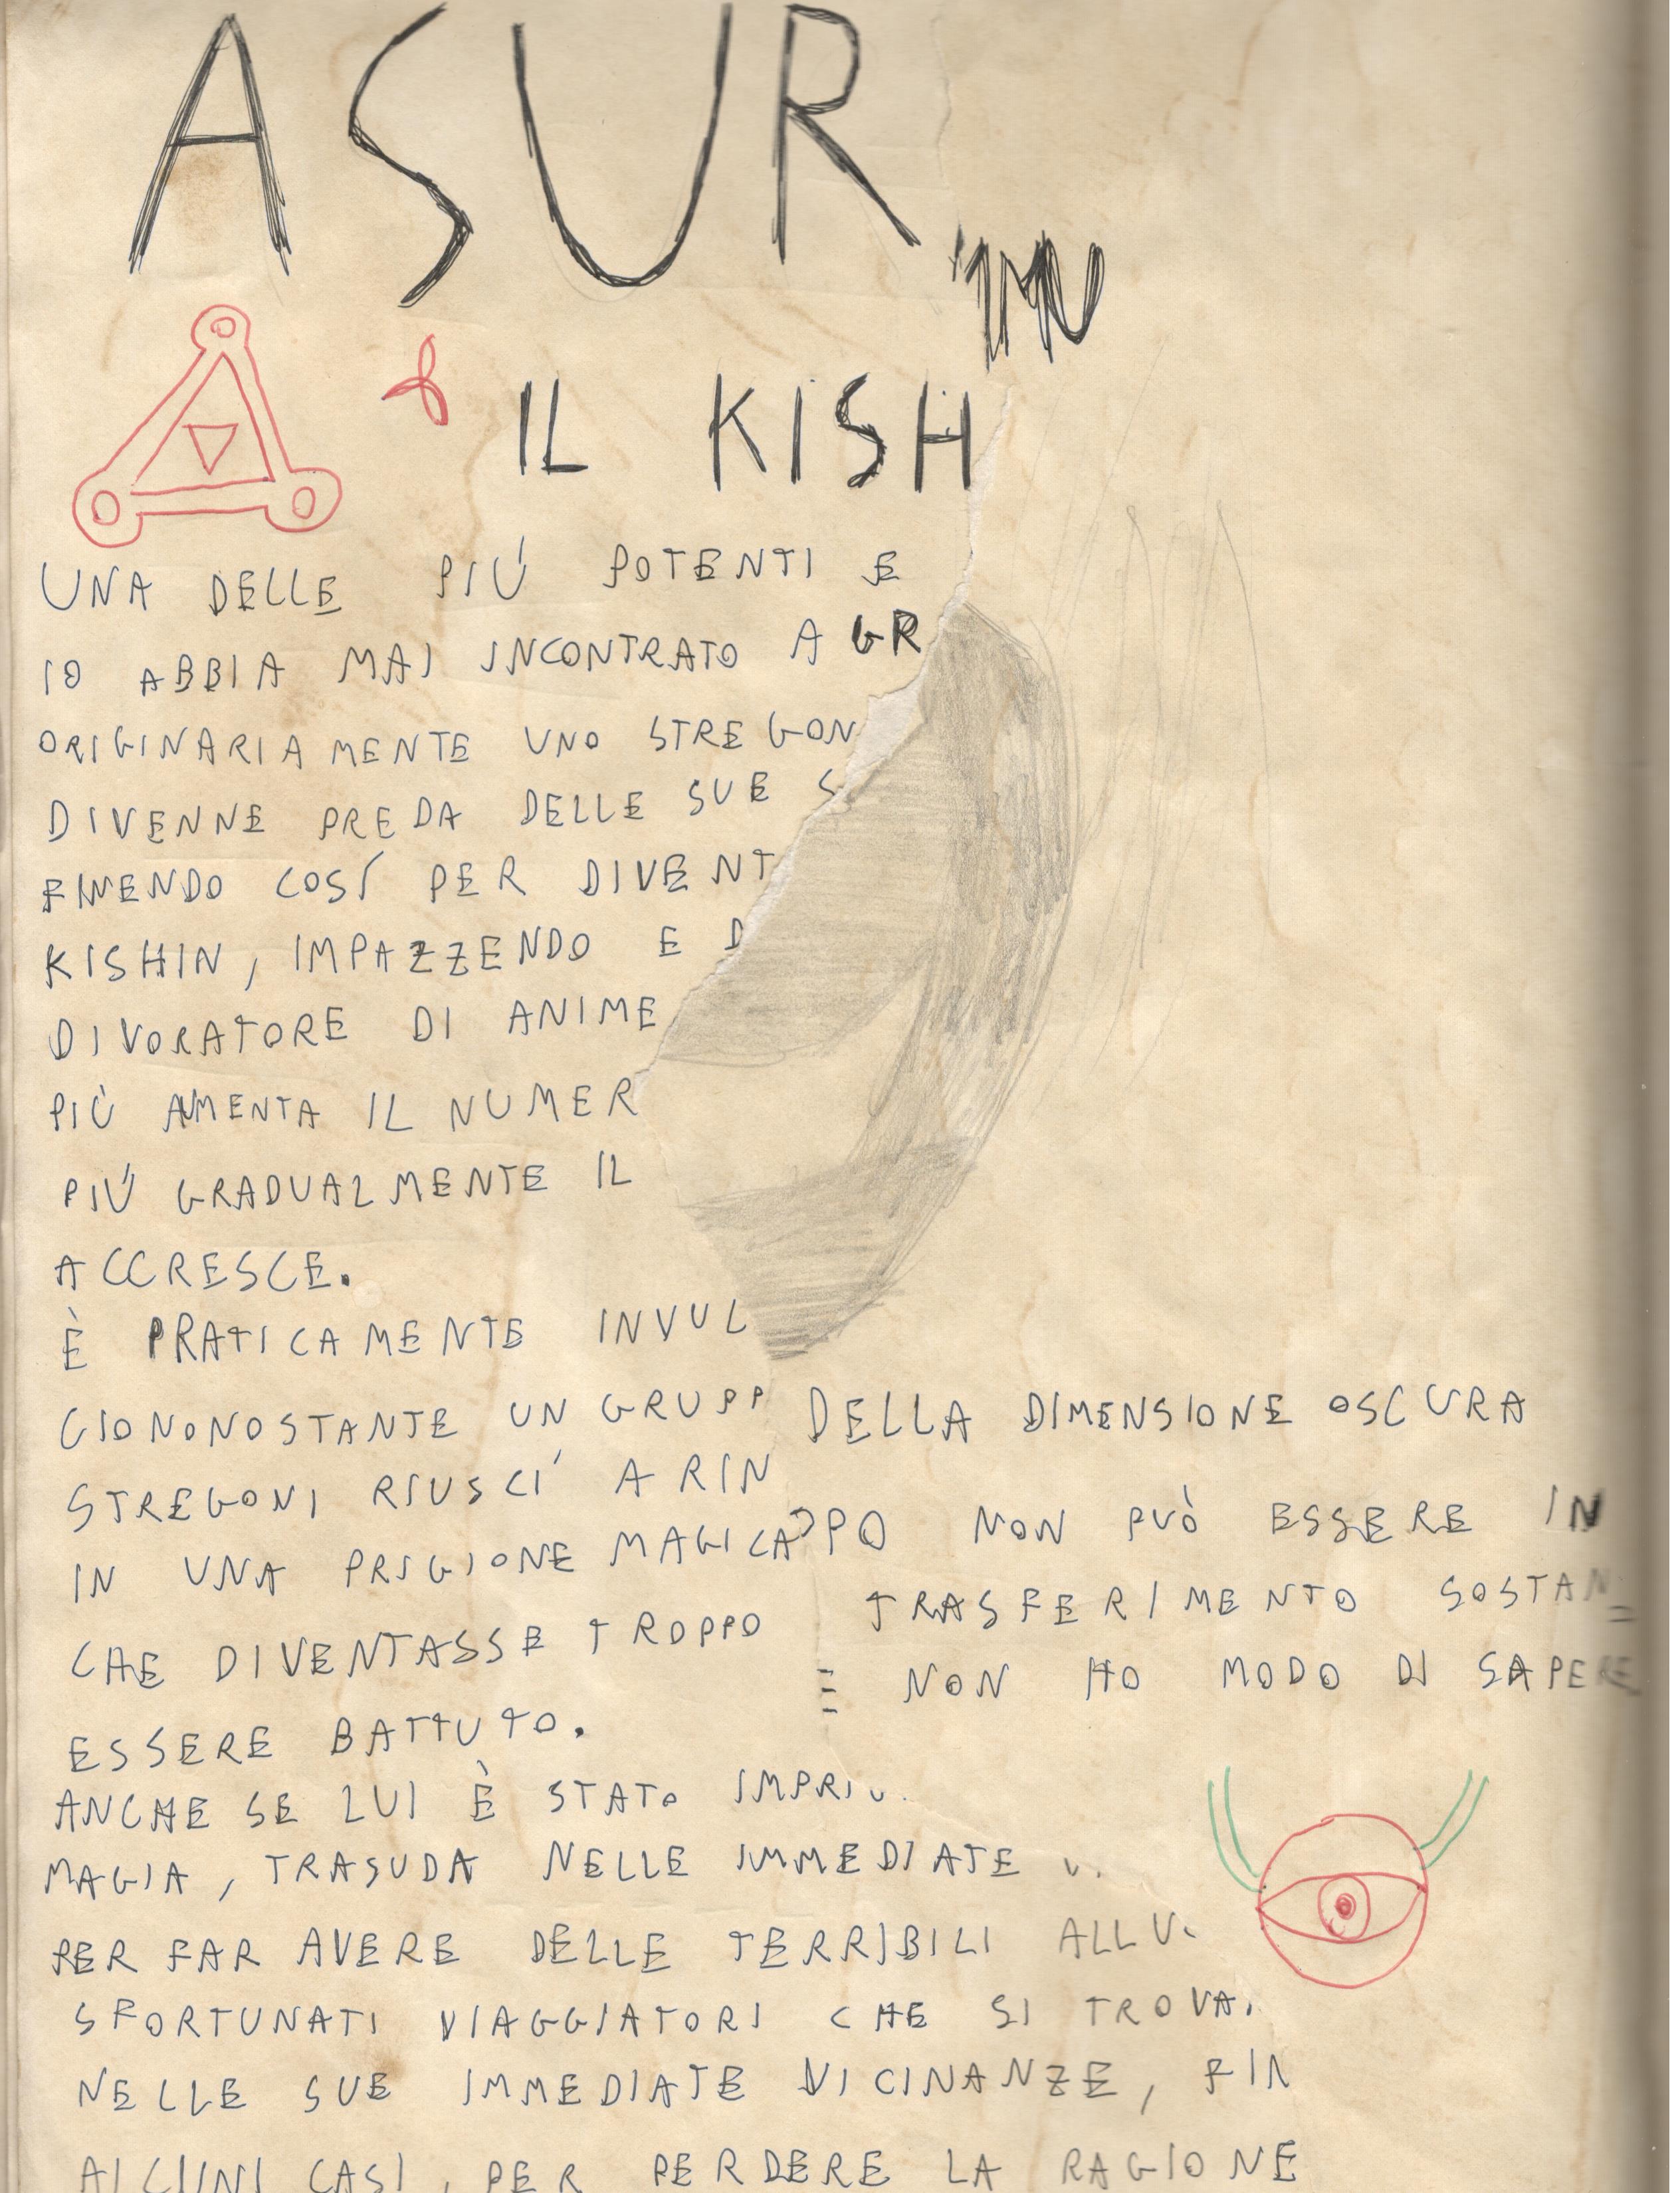 ASUR
IL KISH
UNA DELLE PIÚ POTENTI E
IO ABBIA MAI INCONTRATO A GR
ORIGINARIAMENTE UNO STREGON
DIVENNE PREDA DELLE SUE S
FINENDO COSÍ PER DIVENT
KISHIN, IMPAZZENDO E D
DIVORATORE DI ANIME
PIÙ AUMENTA IL NUMER
PIÚ GRADUALMENTE IL
ACCRESCE.
È PRATICAMENTE INVUL
CIONONOSTANTE UN GRUPP
DELLA DIMENSIONE OSCURA
STREGONI RIUSCI' A RIN
IN UNA PRIGIONE MAGICA
PO NON PUÒ ESSERE IN
CHE DIVENTASSE TROPPO
TRASFERIMENTO SOSTAN
E NON HO MODO DI SAPERE
ESSERE BATTUTO.
ANCHE SE LUI È STATO IMPRI
MAGIA, TRASUDA NELLE IMMEDIATE
PER FAR AVERE DELLE TERRIBILI ALLU
SFORTUNATI VIAGGIATORI CHE SI TROVA
NELLE SUE IMMEDIATE VICINANZE, FIN
ALCUNI CASI, PER PERDERE LA RAGIONE